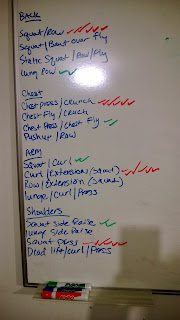 BACK
Squat/Row
Squat/Bent over Fly
Static Squat/Row/Fly
Lung Row
Chest
Chest press/crunch
Chest Fly/Cruch
Chest Press/Chest Fly
Pushup/Row
ARM
Squat/Curl
Curl/Extension (Squad)
Row/Extension (Squad)
lunge/curl/Press
Shoulders
Squat side Raise
lunge Side Raise
Squat press
Dead lift/curl/Press